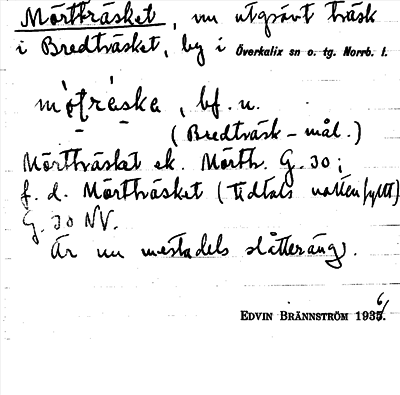 Mörtträsket, nu utgrävt träsk
i Bredträsket, by i Överkalix sn o. tg. Norrb. l.
bf. n.
(Bredträsk-mål.)
Mörtträsket ek. Mörtth. G. 30;
f. d. Mörtträsket (Tidtals vattenfyllt)
G. 30 NV.
Är nu mestadels slåtteräng.
EDVIN BRÄNNSTRÖM 1936.